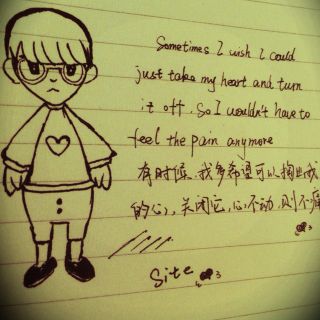 Sometimes I wish I could
just take my heart and turn
it off. So I wouldn't have to
feel the pain anymore
有时候,我多希望可以掏出我
的心,关闭它,心不动,则不痛
Site